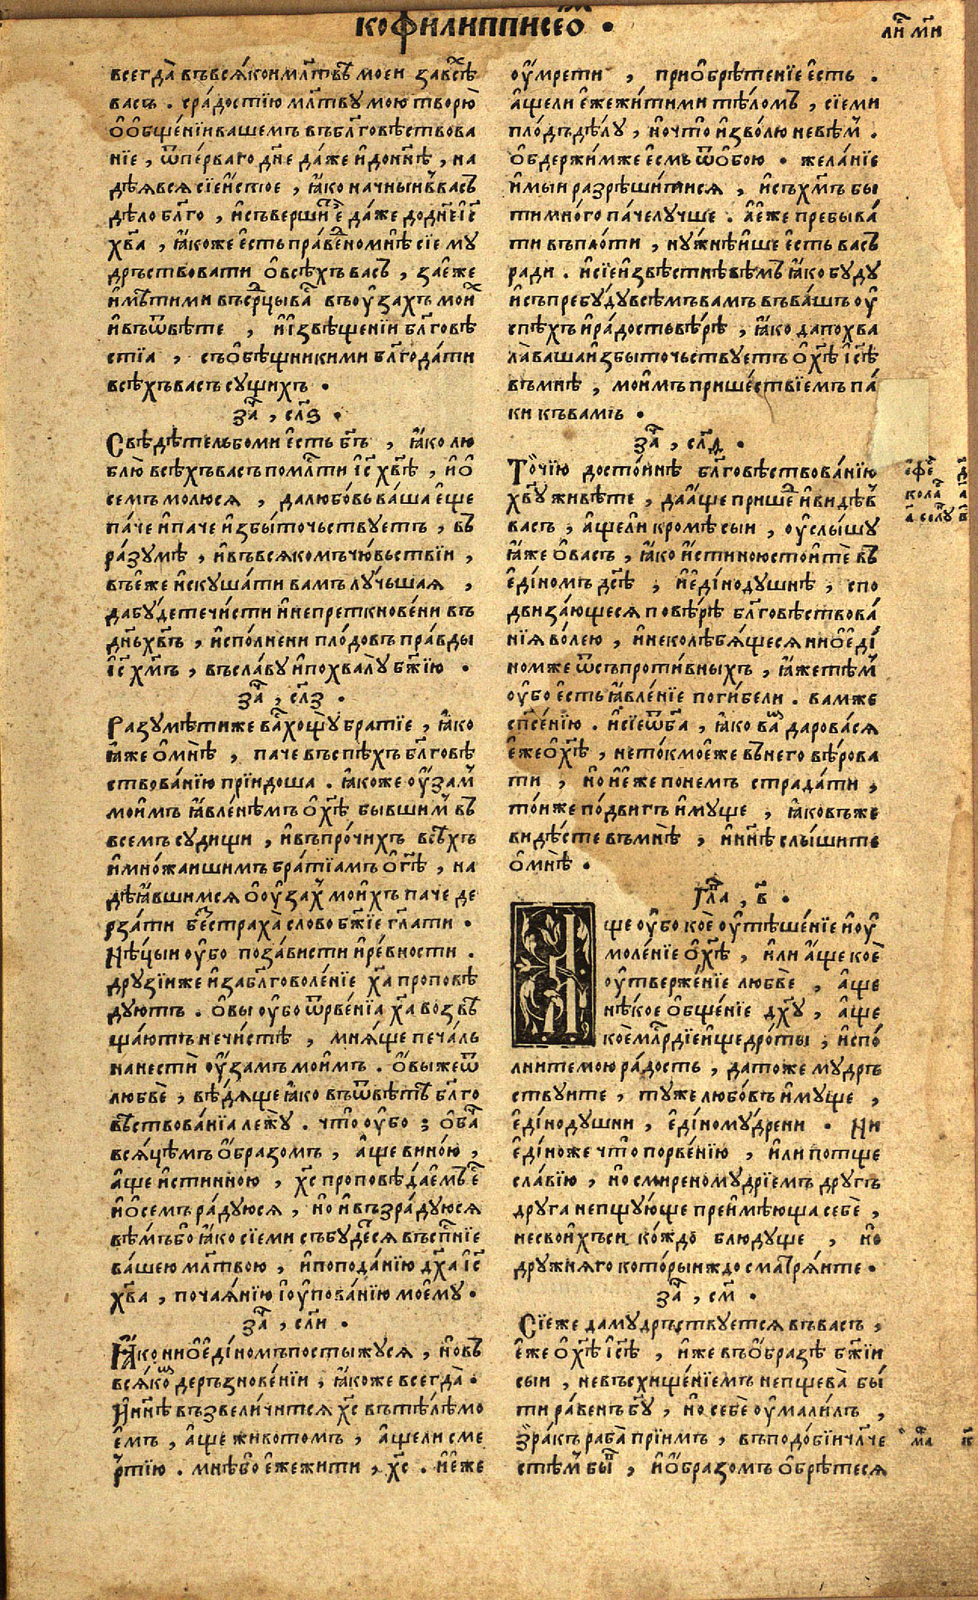 кофилипписеѡ҃м ·
всегда̀ въвся́кои мл҃твѣ моеи за всѣ̑
васъ . срадостїю мл҃тву мою творю̀
ѻ҆ѻ҆бщенїи вашемъ въбл҃говѣствова
нїе , ѿпе́рваго дн҃е да́же и҆донн҃ѣ , на
дѣ́явся сїе и҆стое , ꙗ҆́ко наченыи въ̑ васъ
дѣ́ло бл҃го , и҆съвершит̑ е҆̀ да́же додн҃е і҆с҃
хв҃а , ꙗ҆́коже е҆сть пра́ведно мнѣ̀ сїе му
дръствовати ѻ҆всѣ́хъ васъ , за е҆́же
и҆мѣ́тими въ срд҃цы ва̑ въу҆́захъ мои̑
и҆въѿвѣ́те , и҆и҆звѣщенїи бл҃говѣ
стїа , съѻ҆бѣщникими бл҃года́ти
всѣ́хъ васъ сущихъ ·
за҃ , сл҃ѕ ·
Свѣдѣ́тель бо ми е҆сть бг҃ъ , ꙗ҆́ко лю
блю̀ всѣ́хъ васъ помл҃ти і҆с҃ хв҃ѣ , и҆ѻ҆
семъ молю́ся , далюбо́вь ва́ша е҆ще
па́че и҆паче и҆збы́точьствуетъ , въ
ра́зумѣ , и҆въвся́комъ чю́вьствїи ,
въе҆́же и҆скуша́ти вамъ лу́чьшая ,
дабу́дете чи́сти и҆непреткнове́ни въ
дн҃ь хв҃ъ , и҆спо́лнени плодо́въ пра́вды
і҆с҃ хм҃ъ , въсла́ву и҆похвалу̀ бж҃їю ·
за҃ , сл҃з ·
Разумѣ́тиже ва̑ хощу̀ бра́тїе , ꙗ҆́ко
ꙗ҆́же ѻ҆мнѣ̀ , паче въспѣ́хъ бл҃говѣ
ствова́нїю прїидоша . ꙗ҆́коже у҆́замъ
мои́мъ ꙗ҆вле́нѣмъ ѻ҆хс҃ѣ бы́вшимъ въ
всемъ суди́щи , и҆въпро́чихъ всѣ́хъ
и҆мно́жаишимъ бра́тїамъ ѻ҆гд҃ѣ , на
дѣ́ꙗ҆вшимся ѻ҆ѹ҆́захъ мои́хъ паче де
рза́ти бестраха̀ сло́во бж҃їе гл҃ати ·
Нѣ́цыи у҆́бо поза́висти и҆ре́вности .
дру́зїиже и҆забл҃говоле́нїе хс҃а проповѣ
дуютъ . ѻ҆вы у҆́бо ѿрве́нїа хс҃а возвѣ
ща́ютъ нечи́стѣ , мня́ще печа́ль
нанестѝ у҆́замъ мои́мъ . ѻ҆́выже ѿ
любвѐ , вѣ́дяще ꙗ҆́ко въѿвѣ́тѣ бл҃го
вѣ́ствова́нїа лежу̀ . что̀ у҆́бо ; ѻ҆ба̑
вся́цѣмъ ѻ҆́бразомъ , а҆́ще вино́ю ,
а҆́ще и҆стинною , хс҃ проповѣ́даемъ е҆̑
и҆ѻ҆семъ ра́дуюся , но и҆въ зра́дуюся
вѣ́мъ бо ꙗ҆́ко сїе ми събудеся въсп҃нїе
ва́шею мл҃твою , и҆пода́нїю дх҃а і҆с҃
хв҃а , почая́нїю і҆у҆пова́нїю моему ·
за҃ , сл҃и ·
Ꙗ҆́ко ниѻ҆е҆ди́номъ постыжуся , но въ
вся́ко̑ деръзнове́нїи , ꙗ҆́коже всегда̀ ·
И҆нн҃ѣ възвели́чится хс҃ въ тѣ́лѣ мо
е҆мъ , а҆́ще живото́мъ , а҆́щели сме
ртїю . мнѣ́бо е҆́же жити , хс҃ . и҆е҆́же
лис̑ мн҃и
ѹ҆мре́ти , приѻ҆брѣ́тенїе е҆сть .
а҆́щели е҆́же жи́тими тѣ́ломъ , сїе ми
пло́дъ дѣ́лу , и҆что̀ и҆зво́лю невѣ́мъ .
ѻ҆бдержи́мже е҆смь ѿѻ҆бою ̀ · жела́нїе
и҆мыи разрѣши́тися , и҆съ хм҃ъ бы
ти мно́го па́че лучше . а҆е҆́же пребыва́
ти въпло́ти , ну́жнѣише е҆сть васъ
ради . и҆сїе и҆звѣ́стнѣ вѣ́мъ ꙗ҆́ко буду
и҆съпребу́ду всѣ́мъ вамъ въва́шъ у҆
спѣ́хъ и҆ра́дость вѣ́рѣ , ꙗ҆́ко да похва
ла̀ ваша и҆збы́точьствуетъ ѻ҆хс҃ѣ і҆с҃ѣ
въмнѣ̀ , мои́мъ прише́ствїемъ па́
ки къвамъ ·
за҃ , сл҃д ·
То́чїю досто́инѣ бл҃говѣствова́нїю
хв҃у живѣ́те , да а҆́ще прише̑ и҆видѣ̑въ
васъ , а҆́щели кромѣ̀ сыи , у҆слы́шу
ꙗ҆́же ѻ҆васъ , ꙗ҆́ко и҆стиною стои́тѐ въ
е҆ди́номъ дс҃ѣ , и҆е҆динодушнѣ , спо
двиза́ющеся по вѣ́рѣ бл҃говѣствова́
нїя во́лею , и҆неколѣ́бящеся ниѻ҆е҆ди́
номже ѿсъпроти́вныхъ , ꙗ҆́же тѣ́мъ
у҆́бо е҆сть ꙗ҆вле́нїе поги́бели . вам же
сп҃се́нїю . и҆сїе ѿбг҃а , ꙗ҆́ко ва̑ дарова́ся
е҆́же ѻ҆хс҃ѣ , нетокмо е҆́же вънего вѣ́рова
ти , но и҆е҆́же понемъ страда́ти ,
то́иже по́двигъ и҆му́ще , ꙗ҆ковъ же
ви́дѣсте въмнѣ̀ , и҆нн҃ѣ слы́шите
ѻ҆мнѣ̀ ·
Гла҃ , в҃ ·
Аще у҆́бо коѐ у҆тѣше́нїе и҆ѹ҆
моле́нїе ѻ҆хс҃ѣ , и҆ли а҆́ще коѐ
у҆тверже́нїе любвѐ , а҆ще
нѣ́кое ѻ҆бще́нїе дх҃у , а҆ще
коѐ мл҃рдїе и҆щедро́ты ; и҆спо́
лните мою ра́дость , датоже му́дръ
ствуите , ту́же любо́въ и҆му́ще ,
е҆динодушни , е҆диному́дрени · Ни
е҆ди́ноже что̀ порве́нїю , и҆ли потще
сла́вїю , но смиреному́дрїемъ другъ
друга непщу́юще преи҆мѣ́юща себѐ ,
несвои́хъ си ко́ждо блюду́ще , но
дру́жняго кото́рыиждо сматря́ите ·
за҃ , см҃ ·
Сїе же да му́дръствуется въвасъ ,
е҆́же ѻ҆хс҃ѣ і҆с҃ѣ , и҆же въѻ҆́бразѣ бж҃їи
сыи , невъсхище́нїемъ непщева̀ бы́
ти ра́венъ бг҃у , но себѐ у҆мали́лъ ,
зра́къ раба̀ прїимъ , въподо́бїи чл҃че
стѣ́мъ бы̑ , и҆ѻ҆́бразомъ ѻ҆брѣ́теся